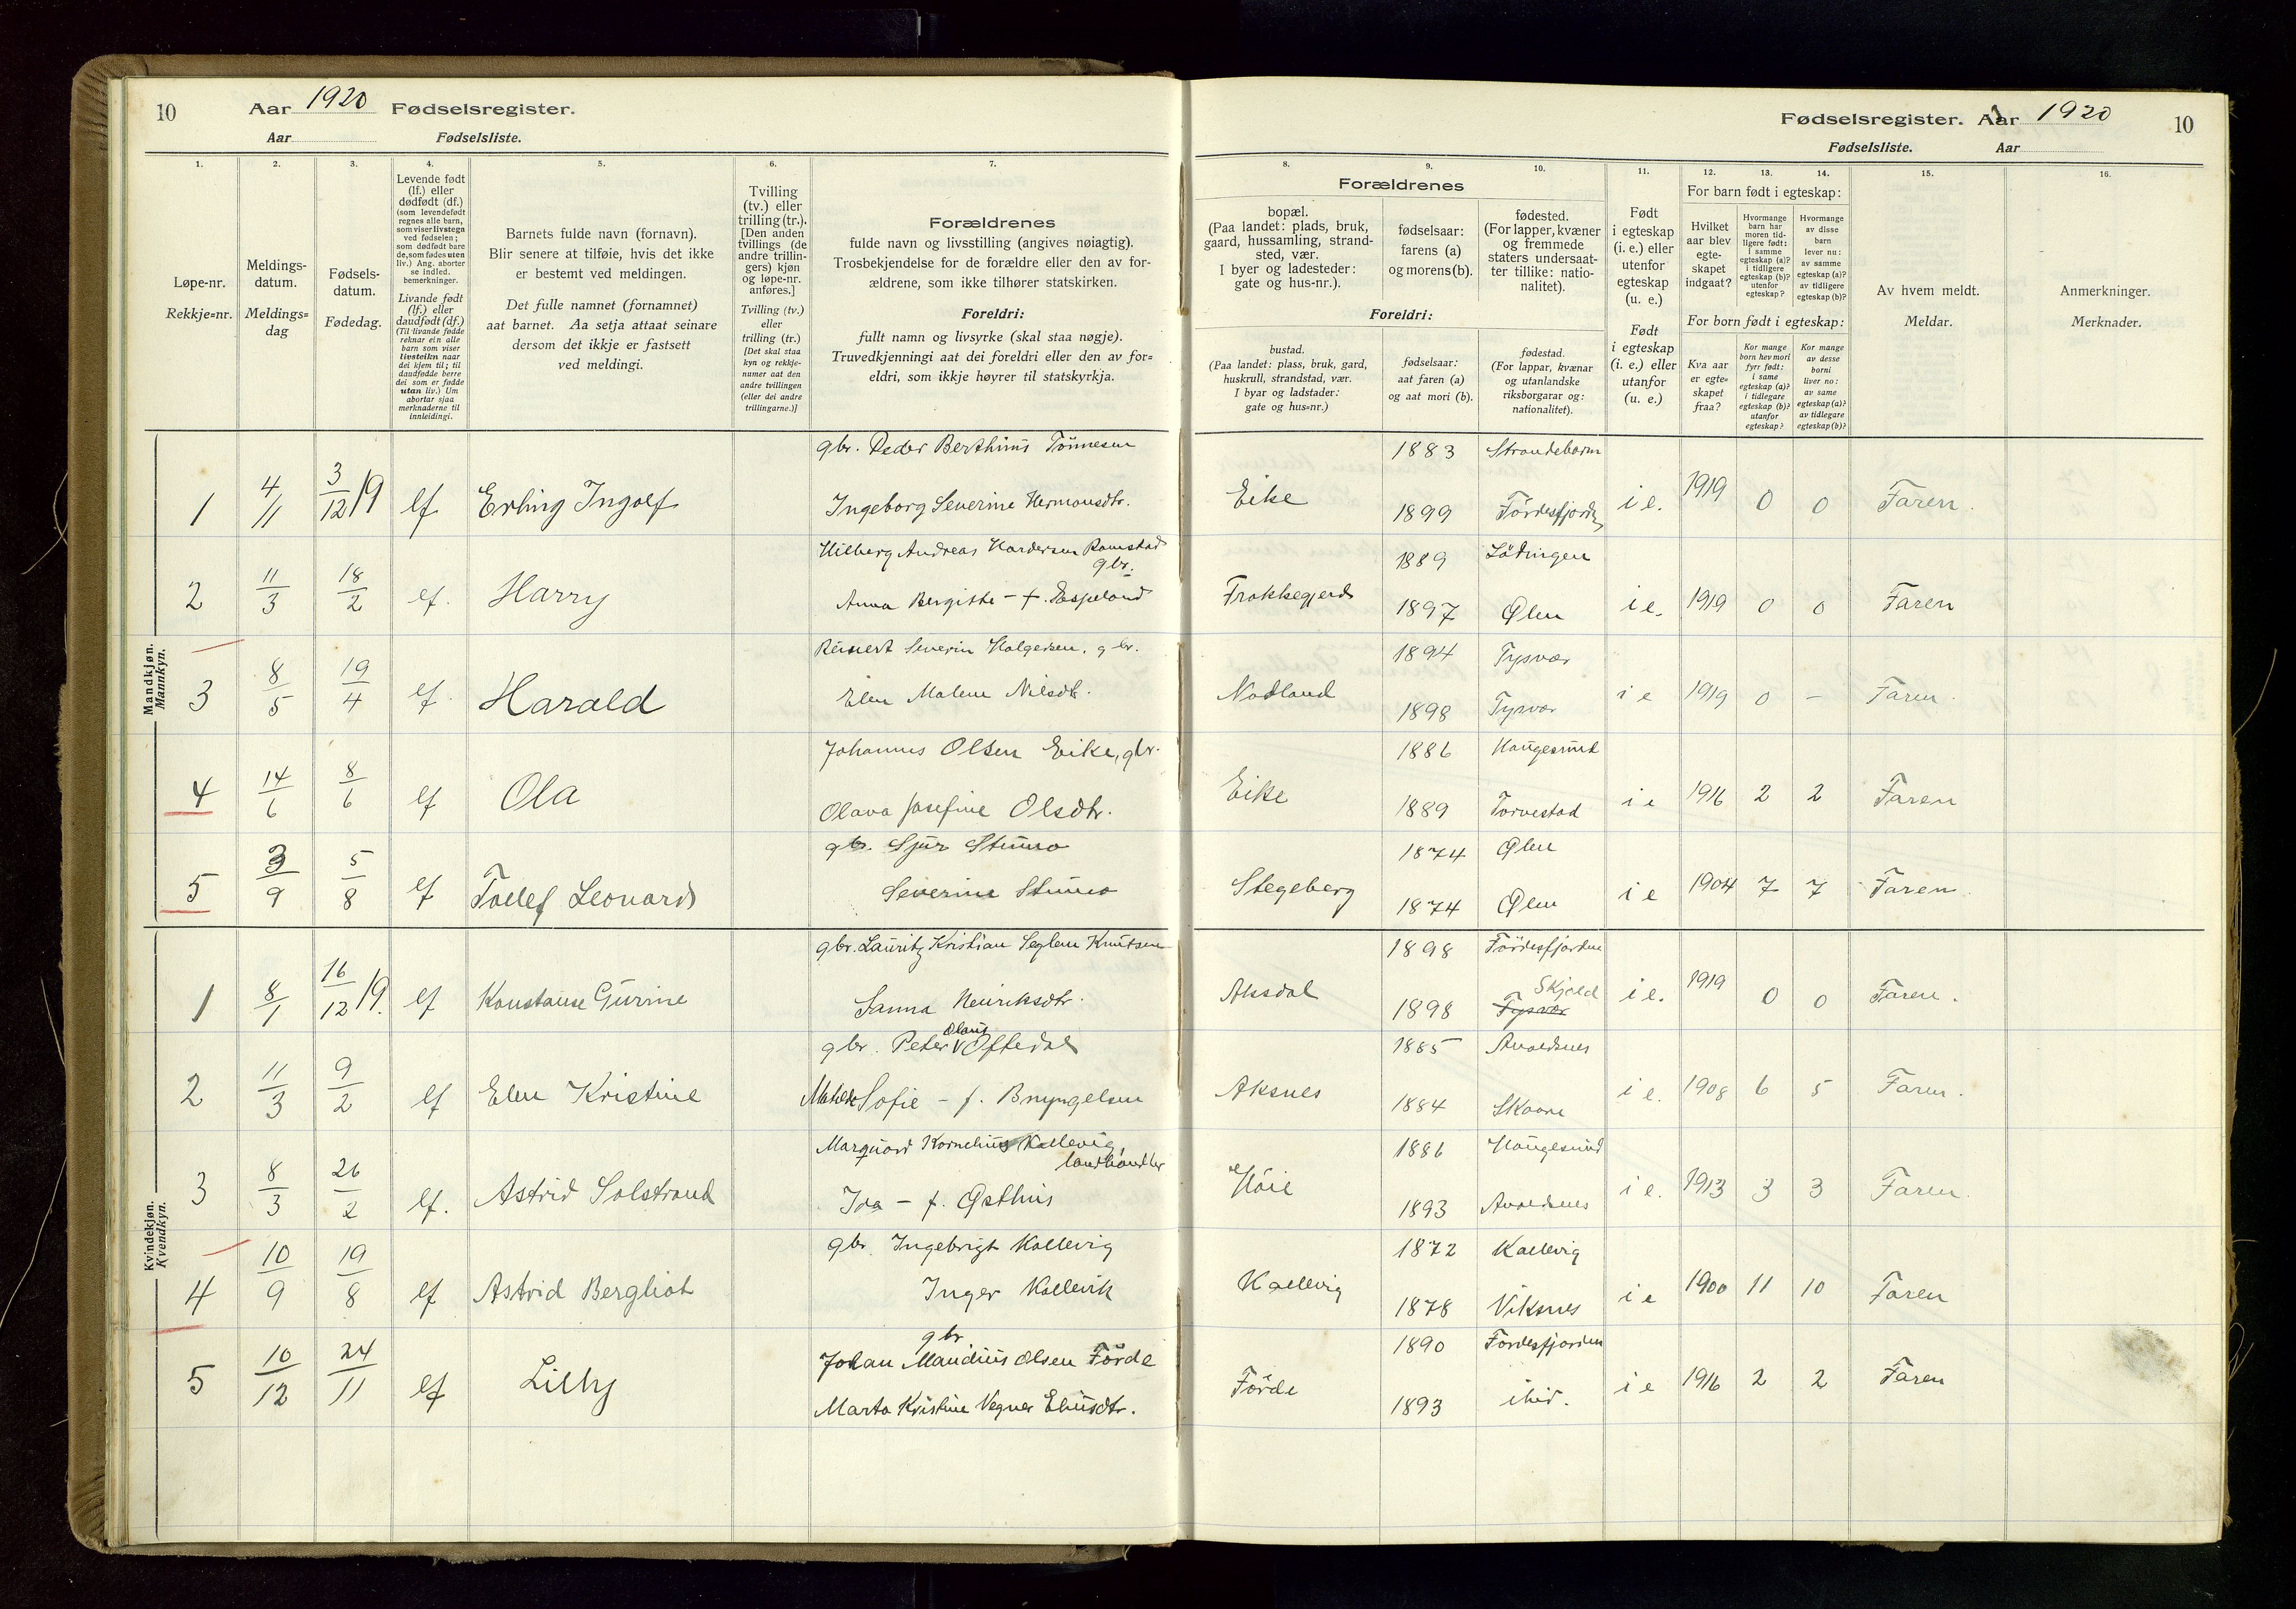 10 Aar 1920 Fødselsregister.
Aar Fødselsliste.
Fødselsregister. Aar 1920 10
Fødselsliste. Aar
1. 2. 3. 4. 5. 6. 7.
Løpe-nr.
Rekkje=nr.
Meldings-
datum.
Meldings=
dag
Fødsels-
datum.
Fødedag.
Levende født
(lf.) eller
dødfødt (df.)
(som levendefødt
regnes alle barn,
som viser livstegn
ved fødselen;
som dødfødt bare
de, som fødes uten
liv.) Ang. aborter
se indled.
bemerkninger.
Livande født
(lf.) eller
daudfødt (df.)
(Til livande fødde
reknar ein alle
barn som viser
livsteikn naar
dei kjem til; til
daudfødde berre
dei som er fødde
utan liv.) Um
abortar sjaa
merknaderne til
innleidingi.
Barnets fulde navn (fornavn).
Blir senere at tilføie, hvis det ikke
er bestemt ved meldingen.
Det fulle namnet (fornamnet)
aat barnet. Aa setja attaat seinare
dersom det ikkje er fastsett
ved meldingi.
Tvilling
(tv.) eller
trilling (tr.).
[Den anden
tvillings (de
andre trillin-
gers) kjøn
og løpe-nr.
anføres.]
Tvilling (tv.)
eller
trilling (tr.)
[Det skal staa
kyn og rekkje-
numer aat den
andre tvillingen
(eller dei andre
trillingarne.)]
Forældrenes
fulde navn og livsstilling (angives nøiagtig).
Trosbekjendelse for de forældre eller den av for-
ældrene, som ikke tilhører statskirken.
Foreldri:
fullt namn og livsyrke (skal staa nøgje).
Truvedkjenningi aat dei foreldri eller den av for=
eldri, som ikkje høyrer til statskyrkja.
8. 9. 10. 11. 12. 13. 14. 15. 16.
Forældrenes
bopæl.
(Paa landet: plads, bruk,
gaard, hussamling, strand-
sted, vær.
I byer og ladesteder:
gate og hus-nr.).
fødselsaar:
farens (a)
og morens (b).
fødested.
(For lapper, kvæner
og fremmede
staters undersaat-
ter tillike: natio-
nalitet).
Foreldri:
bustad.
(Paa landet: plass, bruk, gard,
huskrull, strandstad, vær.
I byar og ladstader:
gate og hus=nr.)
fødselsaar:
aat faren (a)
og aat mori (b).
fødestad.
(For lappar, kvænar
og utanlandske
riksborgarar og:
nationalitet).
Født
i egteskap
(i. e.) eller
utenfor
egteskap
(u. e.)
Født
i egteskap
(i. e.) eller
utanfor
(u. e.)
For barn født i egteskap:
Hvilket
aar blev
egte-
skapet
indgaat?
Hvormange
barn har
moren tid-
ligere født:
i samme
egteskap (a)?
i tidligere
egteskap (b)?
utenfor
egteskap?
Hvormange
av disse
barn
lever nu:
av samme
egteskap (a)?
av tidligere
egteskap (b)?
For born født i egteskap:
Kva aar
er egte=
skapet
fraa?
Kor mange
born hev mori
fyrr født:
i same
egteskap (a)?
i tidlegare
egteskap (b)?
utanfor
egteskap?
Kor mange
av desse
borni
liver no:
av same
egteskap (a)?
av tidlegare
egteskap (b)?
Av hvem meldt.
Meldar.
Anmerkninger.
Merknader.
Mandkjøn.
Mannkyn.
gbr. Peder Berthinus Tönnesen 1883 Strandebarm
1 4/1 3/12 19 lf Erling Ingolf Ingeborg Severine Hermansdtr. Eike 1899 Fördesfjorden i e. 1919 0 0 Faren.
Hilberg Andreas Hardersen Ramstad gbr. 1889 Lödingen
2 11/3 18/2 lf. Harry Anna Bergitte - f. Espeland Frakkagjerd 1897 Ølen i e. 1919 0 0 Faren
Reinert Severin Holgersen, gbr. 1894 Tysvær
3 8/5 19/4 lf. Harald Elen Malene Nilsdt. Nodland 1898 Tysvær i e 1919 0 - Faren.
Johannes Olsen Eike, gbr. 1886 Haugesund
4 14/6 8/6 lf Ola Olava Josefine Olsdtr. Eike 1889 Torvestad i e 1916 2 2 Faren
gbr. Sjur Stumo 1874 Ølen
5 3/9 5/8 lf Tollef Leonard Severine Stumo Stegeberg 1874 Ølen i e 1904 7 7 Faren.
Kvindekjøn.
Kvendkyn.
gbr. Lauritz Kristian Seglem Knutsen 1898 Fördesfjorden
1 8/1 16/12 19. lf Konstanse Gurine Sanna Henriksdtr. Aksdal 1898 Skjold Tysvær i e. 1919 0 0 Faren.
gbr. Peter Olaus Oftedal 1885 Avaldsnes
2 11/3 9/2 lf Elen Kristine Mathilde Sofie - f. Bryngelsen Aksnes 1884 Skaare i e. 1908 6 5 Faren.
Marquard Kornelius Kallevig, landhandler 1886 Haugesund
3 8/3 26/2 lf. Astrid Solstrand Ida - f. Østhus Höie 1893 Avaldsnes i e. 1913 3 3 Faren.
gbr. Ingebrigt Kallevig 1872 Kallevig
4 10/9 19/8 lf Astrid Bergliot Inger Kallevik Kallevig 1878 Viksnes i e 1900 11 10 Faren
gbr
Johan Mandius Olsen Förde 1890 Fördesfjorden
5 10/12 24/11 lf Lilly Marta Kristine Vegner Eliusdtr. Förde 1893 ibid. i e 1916 2 2 Faren